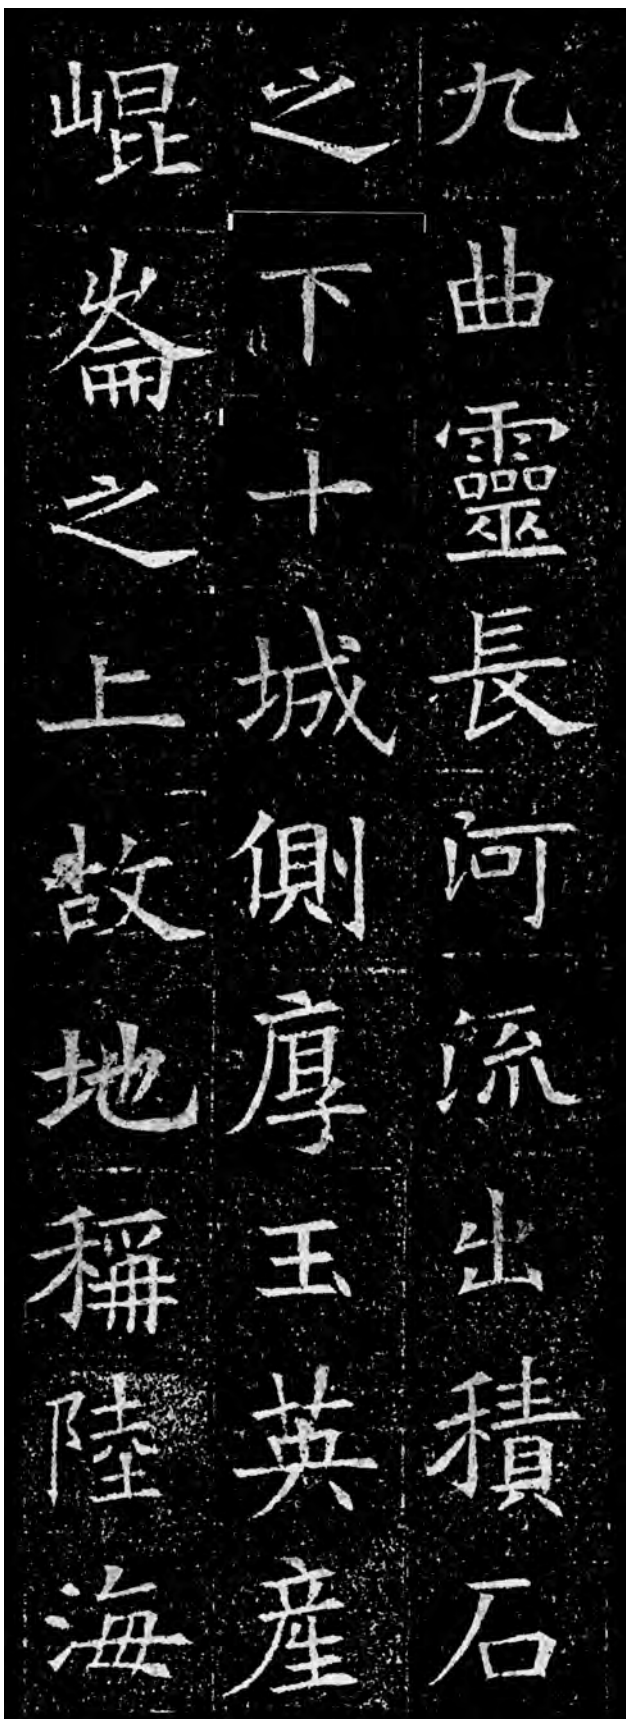 九曲靈長河流出積石
之下十城側厚玉英產
崐崙之上故地稱陸海